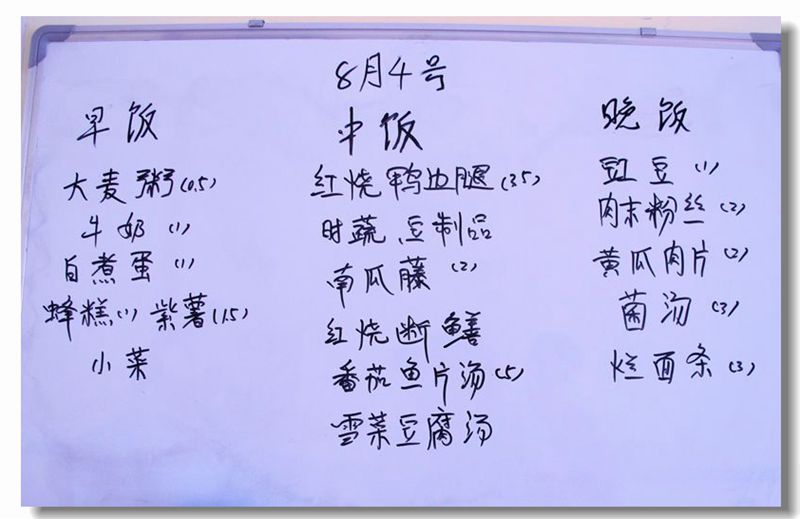 8月4号
早饭
大麦粥(0.5)
牛奶(1)
白煮蛋(1)
蜂糕(1) 紫薯(1.5)
小菜
中饭
红烧鸭边腿(3.5)
时蔬豆制品
南瓜藤(2)
红烧断鳝
番茄鱼片汤(5)
雪菜豆腐汤
晚饭
豇豆(1)
肉末粉丝(2)
黄瓜肉片(2)
菌汤(3)
烂面条(3)